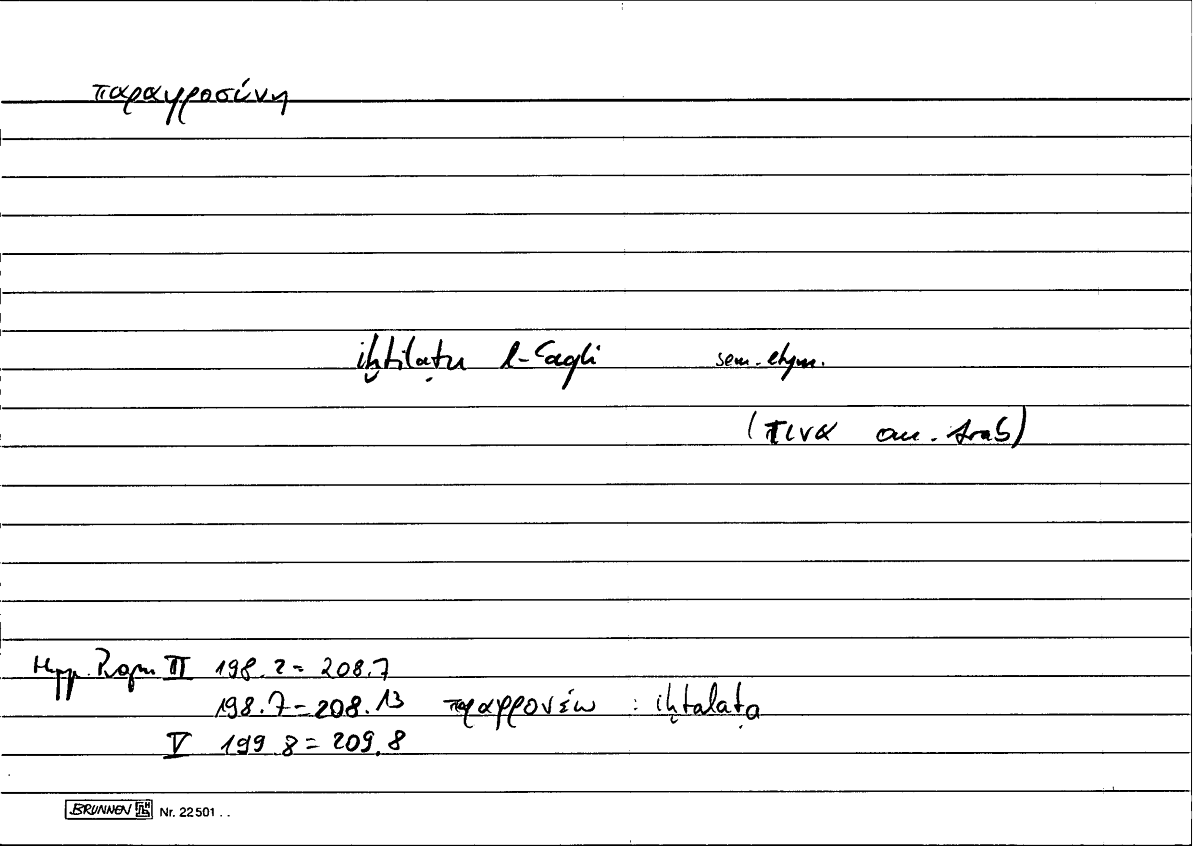 παραφροσύνη
iḫtilāṭu l-ʿaqli sem. etym.
(τινα om. Arab)
Hipp. Progn. II 198.2 = 208.7
198.7 = 208.13 παραφρονέω : iḫtalaṭa
V 199.8 = 209.8
BRUNNEN Nr. 22501 . .